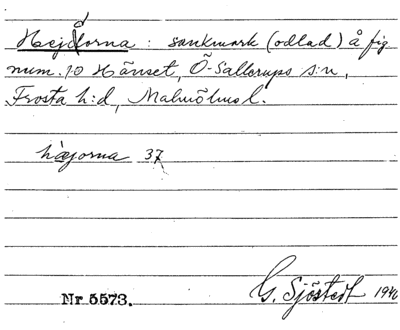 Hejorna : sankmark (odlad) å fig
num. 10 Hänset, Ö. Sallerups s:n,
Frosta h:d, Malmöhus l.
hæjorna 37
Nr 5573.
G. Sjöstedt 1940